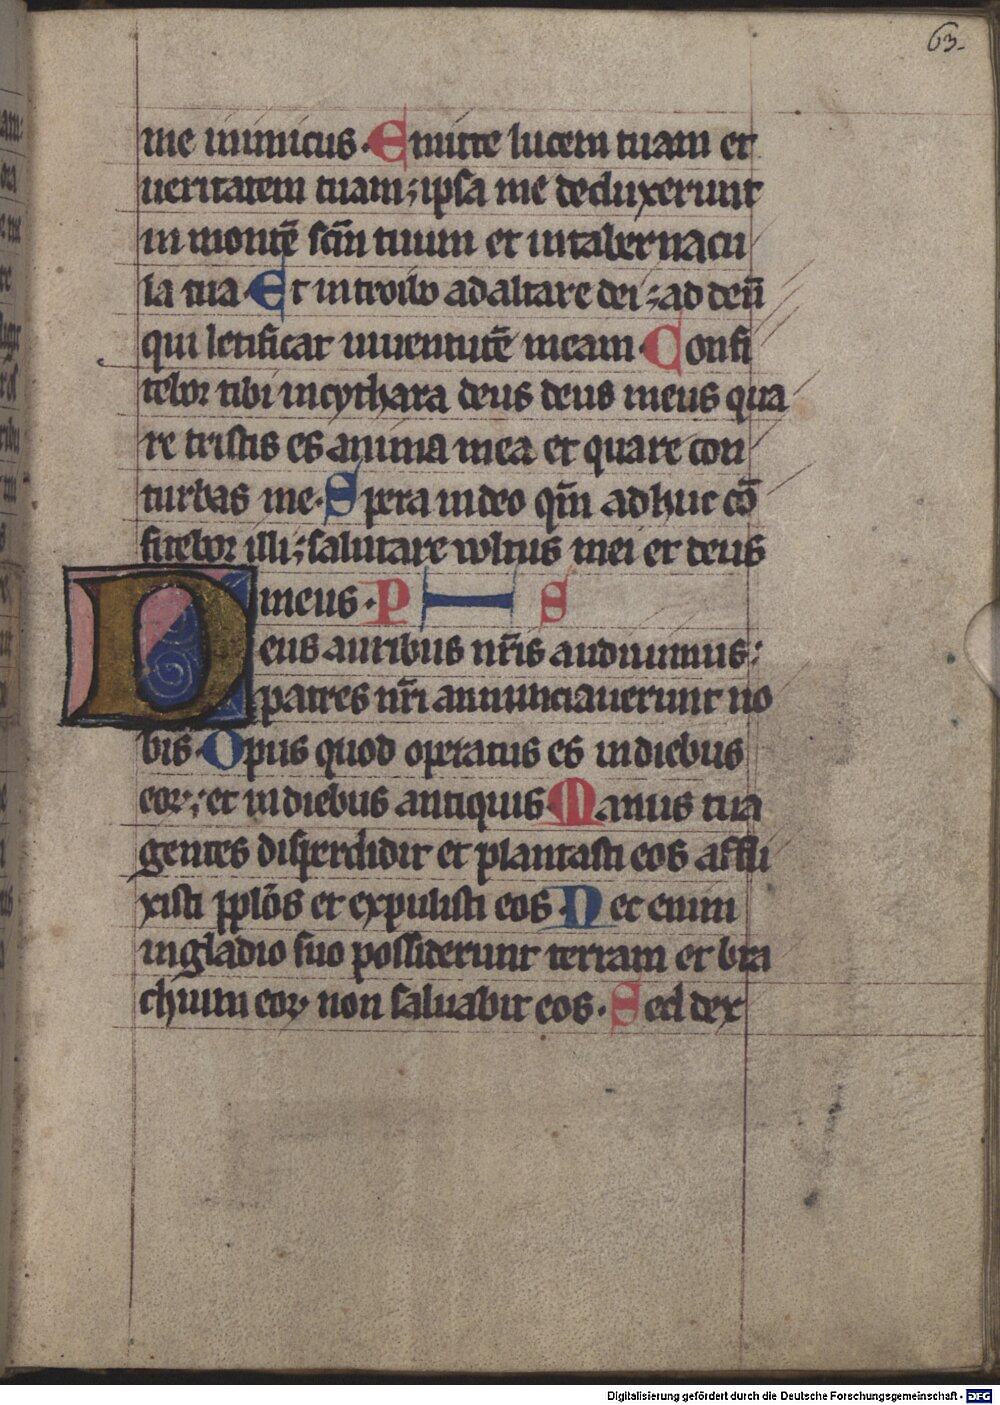 63.
me inimicus. Emitte lucem tuam et
ueritatem tuam; ipsa me deduxerunt
in montē scm̄ tuum et in tabernacu
la tua. Et introibo ad altare dei; ad deū
qui letificat iuuentutē meam. Confi
tebor tibi in cythara deus deus meus qua
re tristis es anima mea et quare con
turbas me. Spera in deo qm̄ adhuc cō
fitebor illi; salutare wltus mei et deus
meus. P H S
Deus auribus nr̄is audiuimus;
patres nr̄i annunciauerunt no
bis. Opus quod operatus es in diebus
eoꝝ; et in diebus antiquis. Manus tua
gentes disperdidit et plantasti eos affli
xisti pplōs et expulisti eos. Nec enim
in gladio suo possiderunt terram et bra
chium eoꝝ non saluabit eos. Sed dex
Digitalisierung gefördert durch die Deutsche Forschungsgemeinschaft - DFG